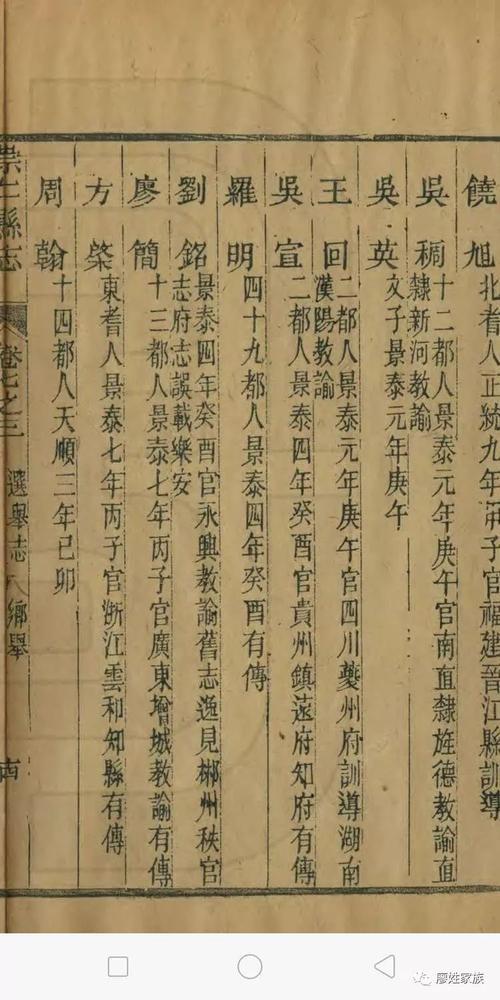 饒旭 北耆人正統九年甲子官福建晉江縣訓導
吳稠 十二都人景泰元年庚午官南直隸旌德教諭直
隸新河教諭
吳英 文子景泰元年庚午
王回 二都人景泰元年庚午官四川夔州府訓導湖南
漢陽教諭
吳宣 二都人景泰四年癸酉官貴州鎮遠府知府有傳
羅明 四十九都人景泰四年癸酉有傳
劉銘 景泰四年癸酉官永興教諭舊志逸見郴州秩官
志府志誤載樂安
廖簡 十三都人景泰七年丙子官廣東增城教諭有傳
方榮 東耆人景泰七年丙子官浙江雲和知縣有傳
周翰 十四都人天順三年己卯
崇仁縣志 卷七之三 選舉志 鄉舉
廖姓家族